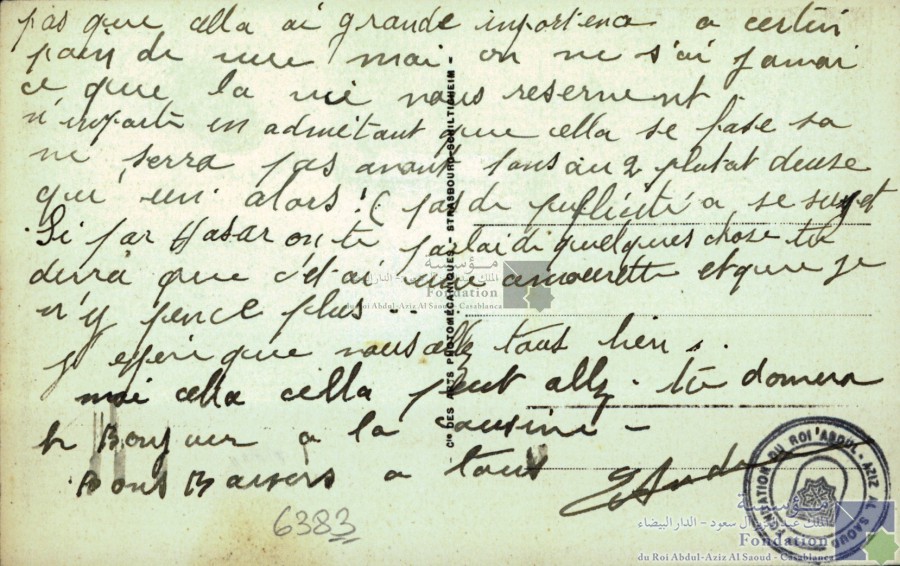 pas que cella ai grande importence a certin
poin de vue mai on ne s'ai jamai
ce que la vie nous reservent
n'inporte en admétant que cella se fase sa
ne serra pas avant 1 ans ou 2 plutat deuse
qu' un alors! (pas de publicité a se sujet
Si par Hasar on te parlai di quelques chose tu
dirra que c'étai une amourette et que je
n'y pence plus...
J' espère que vous allez tous bien..
moi cella cella peut allz. tu donnera
le Bonjour a la Cousine -
Bons Baisers a tous
6383
- Cie DES ARTS PHOTOMÉCANIQUES - STRASBOURG-SCHILTIGHEIM -
مؤسسة
الملك عبد العزيز آل سعود - الدار البيضاء
Fondation
du Roi Abdul-Aziz Al Saoud - Casablanca
FONDATION DU ROI ABDUL-AZIZ AL SAOUD
الملك عبد العزيز آل سعود - الدار البيضاء
Fondation
du Roi Abdul-Aziz Al Saoud - Casablanca